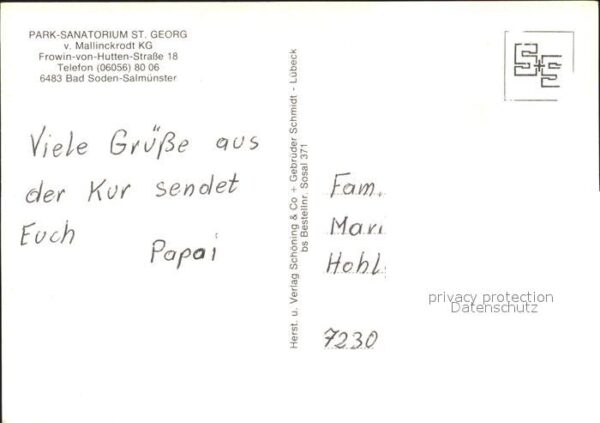 PARK-SANATORIUM ST. GEORG
v. Mallinckrodt KG
Frowin-von-Hutten-Straße 18
Telefon (06056) 80 06
6483 Bad Soden-Salmünster
Viele Grüße aus
der Kur sendet
Euch
Papai
Herst. u. Verlag Schöning & Co + Gebrüder Schmidt - Lübeck
bs Bestellnr. Sosal 371
S+E
Fam.
Mari
Hohl
7230
privacy protection
Datenschutz